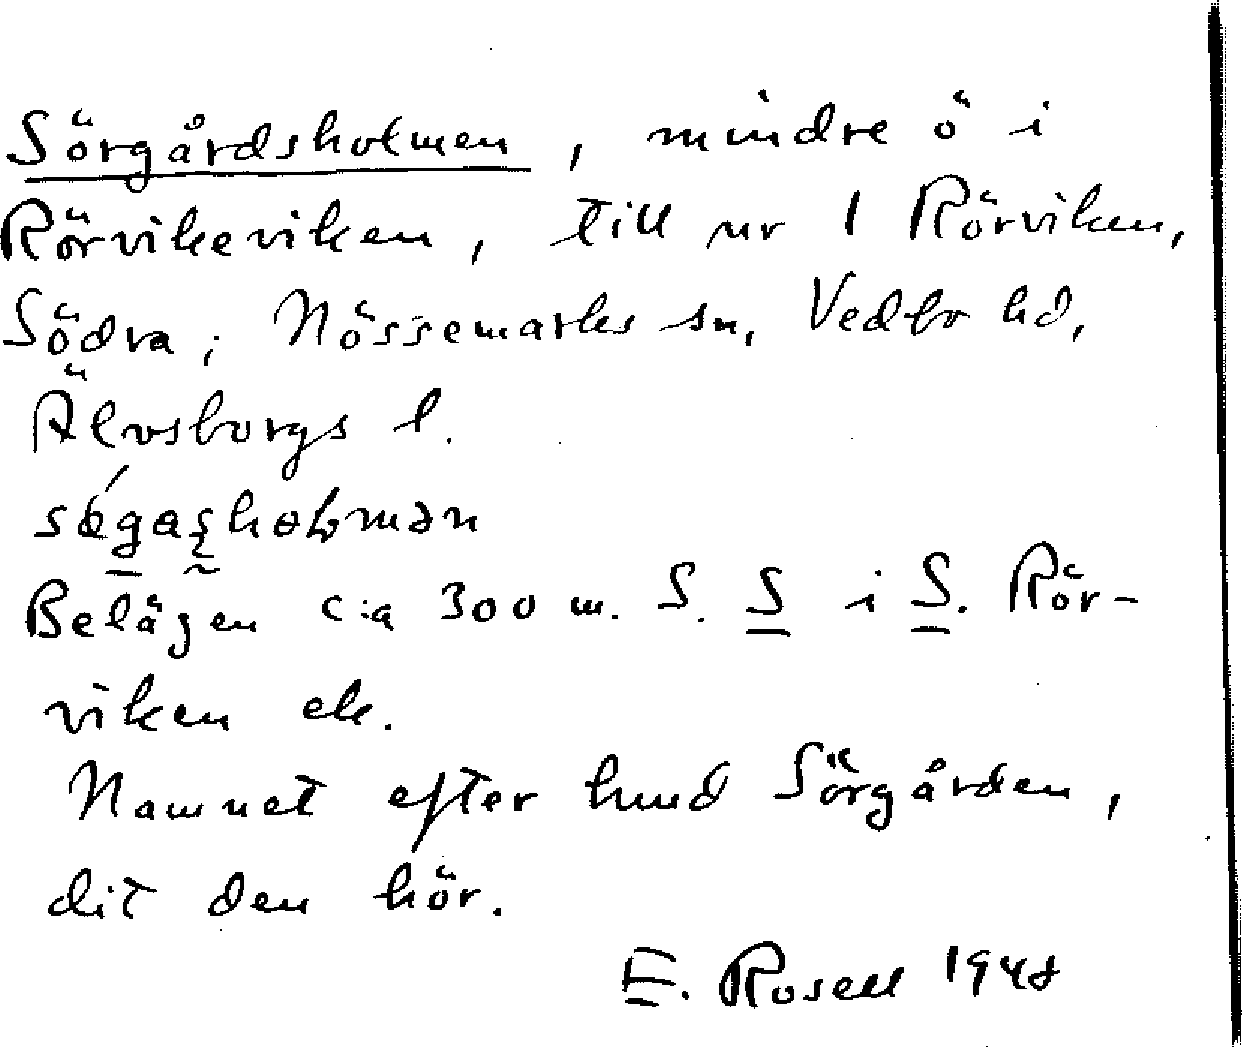 Sörgårdsholmen, mindre ö i
Rörvikeviken, till nr 1 Rörviken,
Södra, Nössemarks sn, Vedbo hd,
Älvsborgs l.
Belägen c:a 300 m. S. S i S. Rör-
viken ek.
Namnet efter hmd Sörgården,
dit den hör.
E. Rosell 1948